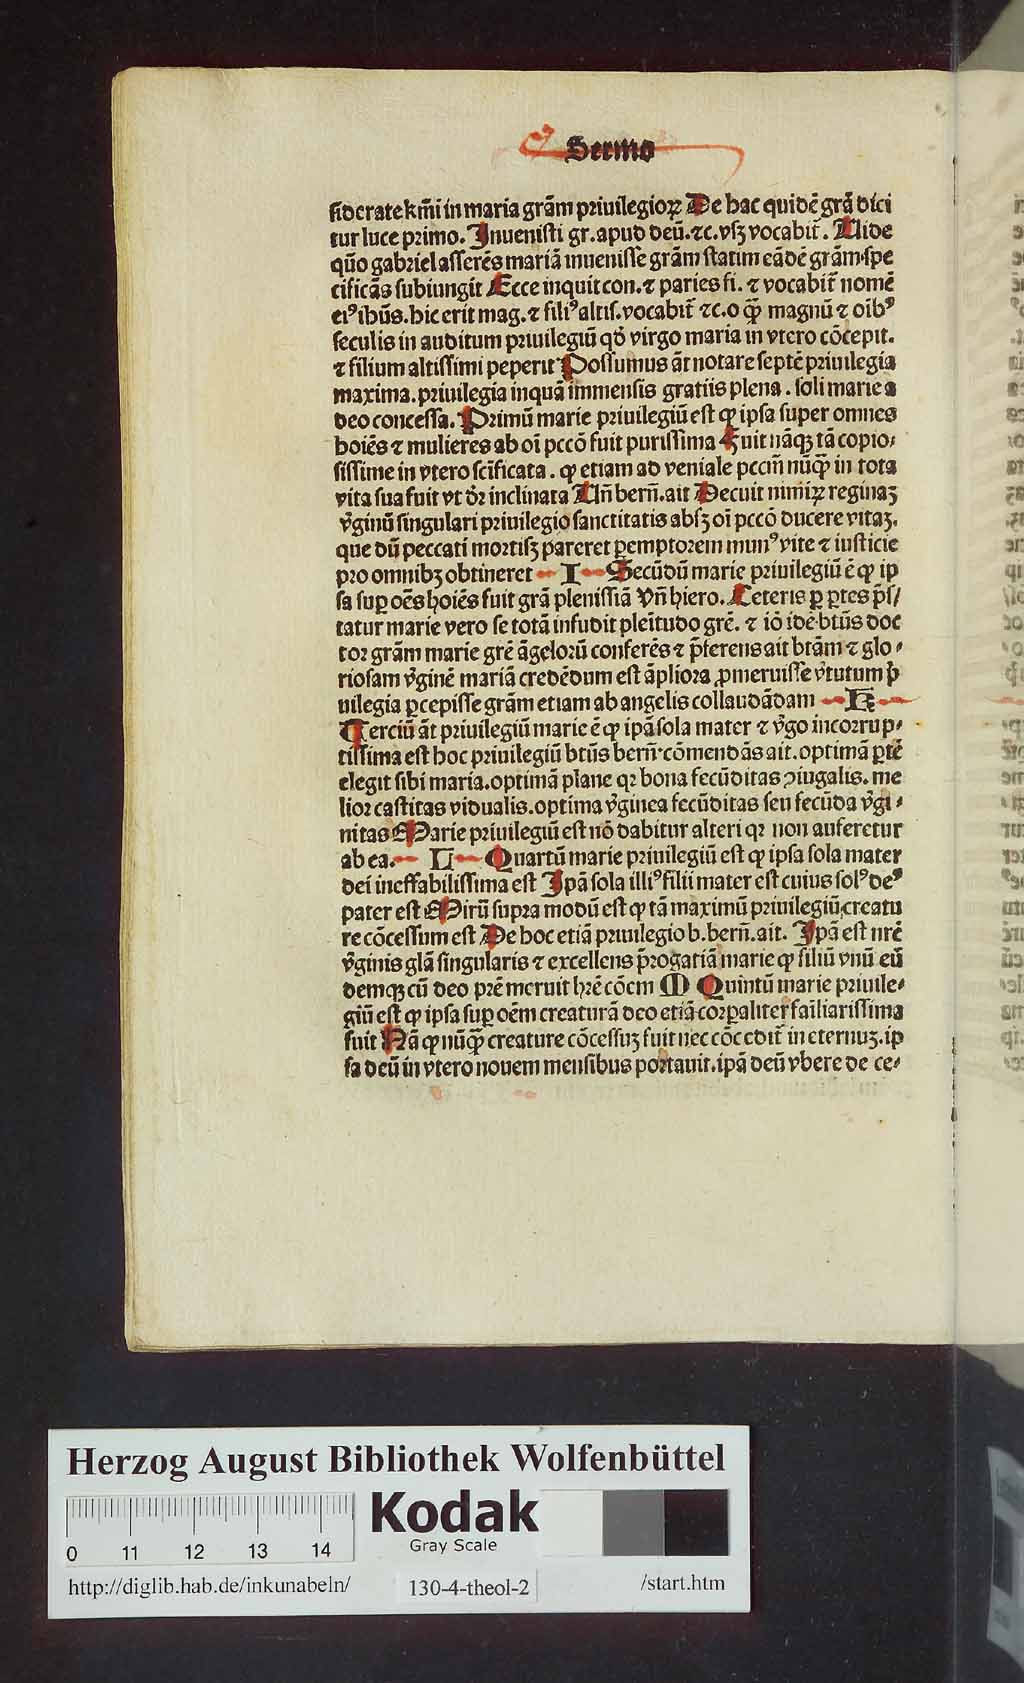 Sermo
siderate kr̃mi in maria grãm priuilegioꝝ De hac quidē grã dici
tur luce primo. Inuenisti gr. apud deū. ⁊c. vsqꝫ vocabit̃. Uide
quō gabriel asserēs mariã inuenissē grãm statim eãdē grãm spe
cificãs subiungit Ecce inquit con. ⁊ paries fi. ⁊ vocabit̃ nomē
eiꝰ ihūs. hic erit mag. ⁊ filiꝰ altis. vocabit̃ ⁊c. o ꝙ̃ magnū ⁊ oībꝰ
seculis in auditum priuilegiū qđ virgo maria in vtero cōcepit.
⁊ filium altissimi peperit Possumus ãt notare septē priuilegia
maxima. priuilegia inquã immensis gratiis plena. soli marie a
deo concessa. Primū marie priuilegiū est ꝙ ipsa super omnes
hoīes ⁊ mulieres ab oī pccō fuit purissima Fuit nãqꝫ tã copio-
sissime in vtero scīficata. ꝙ etiam ad veniale pccm̃ nūꝙ̃ in tota
vita sua fuit vt dr̃ inclinata Uñ berñ. ait Decuit nimiꝝ reginaꝫ
v̓ginū singulari priuilegio sanctitatis absqꝫ oī pccō ducere vitaꝫ.
que dū peccati mortisqꝫ pareret ꝑemptorem munꝰ vite ⁊ iusticie
pro omnibꝫ obtineret I Secūdū marie priuilegiū ē ꝙ ip
sa suꝑ oēs hoiēs fuit grã plenissiã Vñ hiero. Ceteris ꝑ ꝑtes p̃s/
tatur marie vero se totã infudit pleītudo grē. ⁊ iō idē btūs doc
tor grãm marie grē ãgelorū conferēs ⁊ p̃ferens ait btãm ⁊ glo-
riosam v̓ginē mariã credēdum est ãpliora ꝓmeruisse v̓tutum p̓
uilegia ꝑcepisse grãm etiam ab angelis collaudãdam K
Terciū ãt priuilegiū marie ē ꝙ ipã sola mater ⁊ v̓go incorrup-
tissima est hoc priuilegiū btūs berñ cōmendãs ait. optimã ꝑtē
elegit sibi maria. optimã plane qꝛ bona fecūditas ꝯiugalis. me
lior castitas vidualis. optima v̓ginea fecūditas seu fecūda v̓gi-
nitas Marie priuilegiū est nō dabitur alteri qꝛ non auferetur
ab ea. L Quartū marie priuilegiū est ꝙ ipsa sola mater
dei ineffabilissima est Ipã sola illiꝰ filii mater est cuius solꝰ deꝰ
pater est Mirū supra modū est ꝙ tã maximū priuilegiū creatu
re cōcessum est De hoc etiã priuilegio b. berñ. ait. Ipã est nrē
v̓ginis glã singularis ⁊ excellens p̃rogatiã marie ꝙ filiū vnū eū
demqꝫ cū deo prē meruit hr̃e cōem M Quintū marie priuile-
giū est ꝙ ipsa suꝑ oēm creaturã deo etiã corꝑaliter faīliarissima
fuit Nã ꝙ nūꝙ̃ creature cōcessuꝫ fuit nec cōcedit̃ in eternuꝫ. ip
sa deū in vtero nouem mensibus portauit. ipã deū vbere de ce-
Herzog August Bibliothek Wolfenbüttel
Kodak
Gray Scale
0 11 12 13 14
http://diglib.hab.de/inkunabeln/ 130-4-theol-2 /start.htm